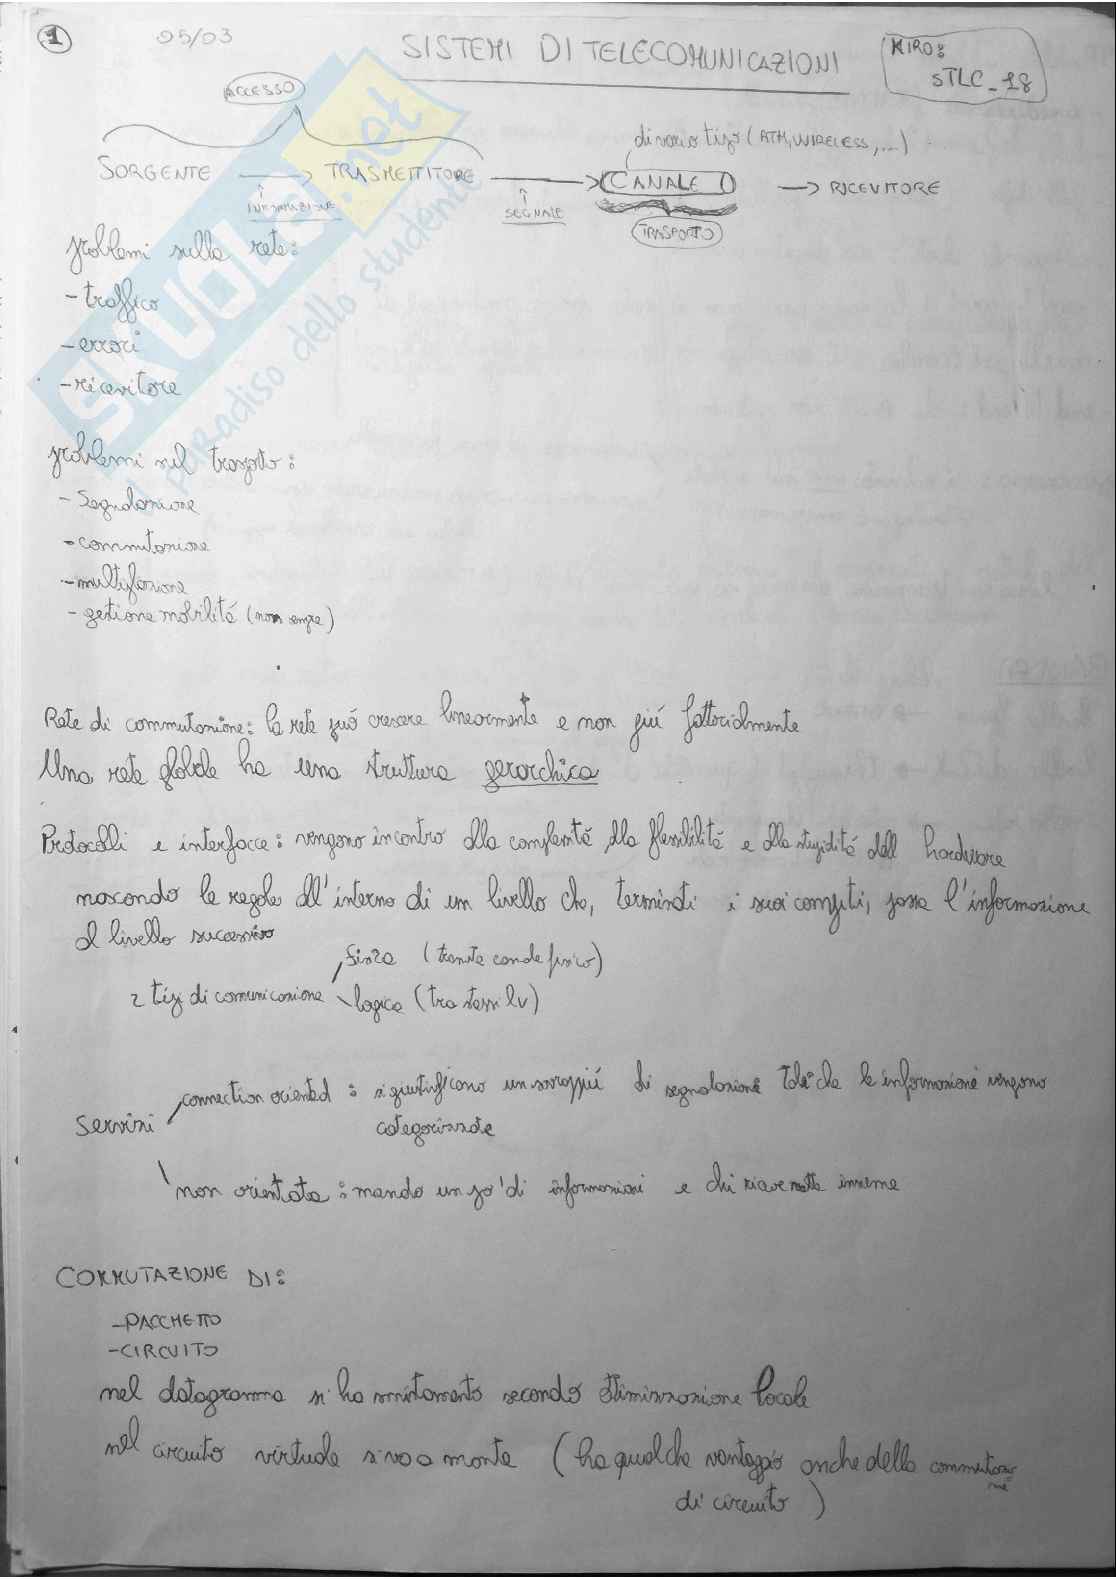 1
05/03
SISTEMI DI TELECOMUNICAZIONI
KIRO:
STLC_18
ACCESSO
di vario tipo (ATM, WIRELESS, ...)
SORGENTE → TRASMETTITORE → CANALE () → RICEVITORE
INFORMAZIONE
SEGNALE
TRASPORTO
problemi sulla rete:
- traffico
- errori
- ricevitore
problemi nel trasporto:
- Segnalazione
- commutazione
- multiplazione
- gestione mobilitá (non sempre)
Rete di commutazione: la rete puó crescere linearmente e non piú fattorialmente
Una rete globale ha una struttura gerarchica
Protocolli e interfacce: vengono incontro alla complessitá, alla flessibilitá e alla stupiditá dell' hardware
nascondo le regole all'interno di un livello che, terminati i suoi compiti, passa l'informazione
al livello successivo
fisica (tramite canale fisico)
2 tipi di comunicazione
logica (tra stessi lv)
connection oriented: si giustificano un sovrappiú di segnalazione tale che le informazioni vengono
categorizzate
Servizi
non orientata: mando un po' di informazioni e chi riceve mette insieme
COMMUTAZIONE DI:
- PACCHETTO
- CIRCUITO
nel datagramma si ha smistamento secondo ottimizzazione locale
nel circuito virtuale si va a monte (ha qualche vantaggio anche della commutazione
di circuito)
SKUOLA.net
il paradiso dello studente